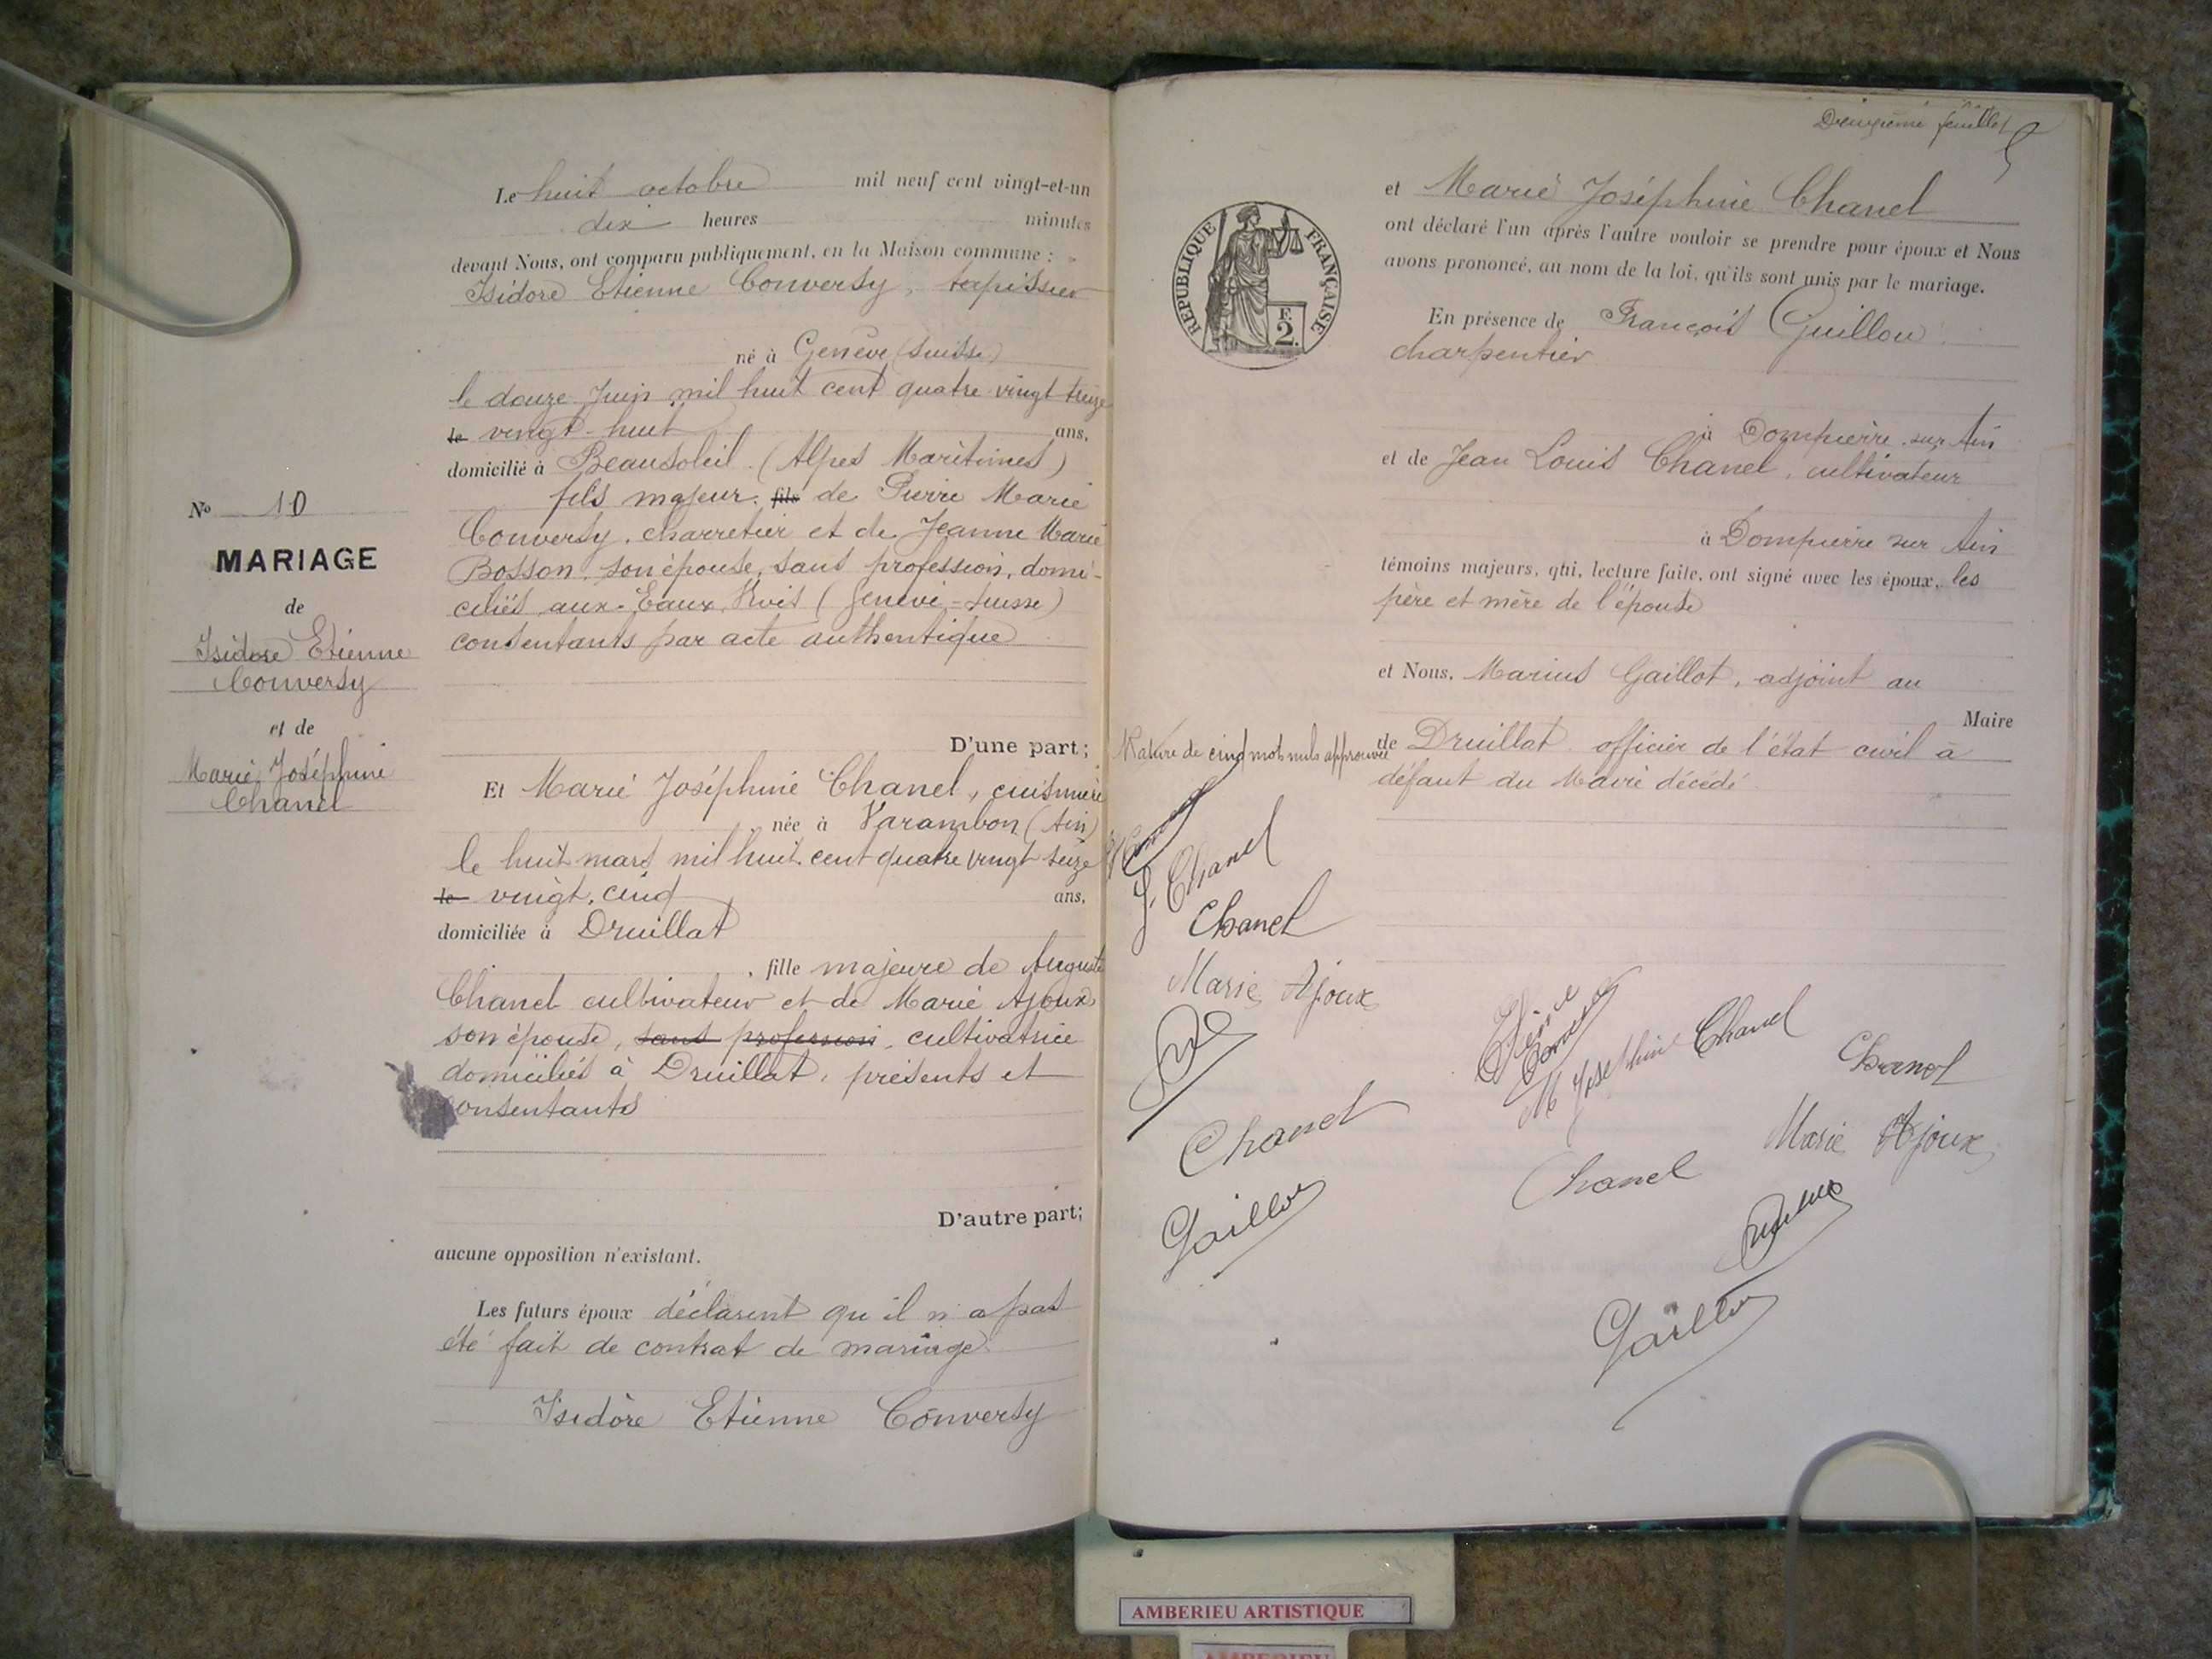 Le huit octobre mil neuf cent vingt-et-un
dix heures minutes
devant Nous, ont comparu publiquement, en la Maison commune :
Isidore Etienne Conversy, tapissier
né à Genève (Suisse)
le douze Juin mil huit cent quatre vingt treize
le vingt-huit ans,
domicilié à Beausoleil (Alpes Maritimes)
fils majeur fils de Pierre Marie
Conversy, charretier et de Jeanne Marie
Bosson, son épouse, sans profession, domi-
ciliés aux Eaux Vives (Genève-Suisse)
consentants par acte authentique
D'une part;
No 10
MARIAGE
de
Isidore Etienne
Conversy
et de
Marie Joséphine
Chanel
Et Marie Joséphine Chanel, cuisinière
née à Varambon (Ain)
le huit mars mil huit cent quatre vingt seize
le vingt-cinq ans,
domiciliée à Druillat
, fille majeure de Auguste
Chanel cultivateur et de Marie Ajoux
son épouse, sans profession, cultivatrice
domiciliés à Druillat, présents et
consentants
D'autre part;
aucune opposition n'existant.
Les futurs époux déclarent qu'il n'a pas
été fait de contrat de mariage
Isidore Etienne Conversy
Deuxième feuillet
RÉPUBLIQUE FRANÇAISE
F.
2.
et Marie Joséphine Chanel
ont déclaré l'un après l'autre vouloir se prendre pour époux et Nous
avons prononcé, au nom de la loi, qu'ils sont unis par le mariage.
En présence de François Guillou
charpentier
à Dompierre sur Ain
et de Jean Louis Chanel, cultivateur
à Dompierre sur Ain
témoins majeurs, qui, lecture faite, ont signé avec les époux, les
père et mère de l'épouse
et Nous, Marius Gaillot, adjoint au
Maire
de Druillat officier de l'état civil à
défaut du Maire décédé
Rature de cinq mots nuls approuvée
J. Chanel
Chanel
Marie Ajoux
Chanel
Gaillot
Etienne
Conversy
M Josephine Chanel
Chanel
Marie Ajoux
Chanel
Gaillot
AMBERIEU ARTISTIQUE
AMBERIEU